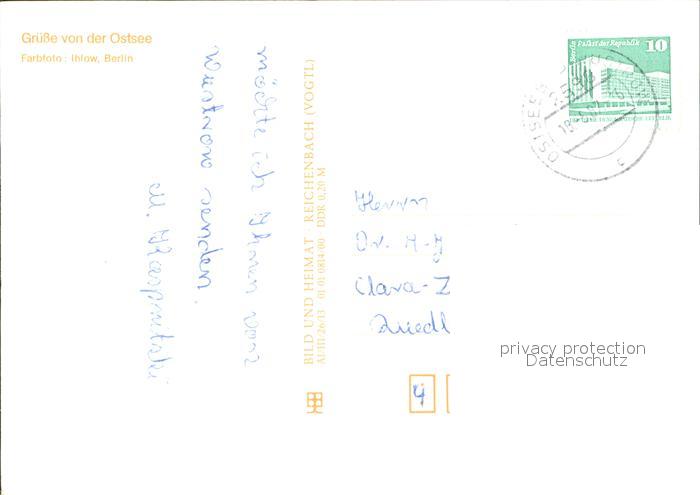 Grüße von der Ostsee
Farbfoto: Ihlow, Berlin
möchte ich Ihnen von
senden.
BILD UND HEIMAT · REICHENBACH (VOGTL)
A1/III/26/13 01 01 0814/00 DDR 0,20 M
Berlin Palast der Republik 10
OSTSEEB
Herrn
Dr. H-
Clara-Z
Riedl
4
privacy protection
Datenschutz